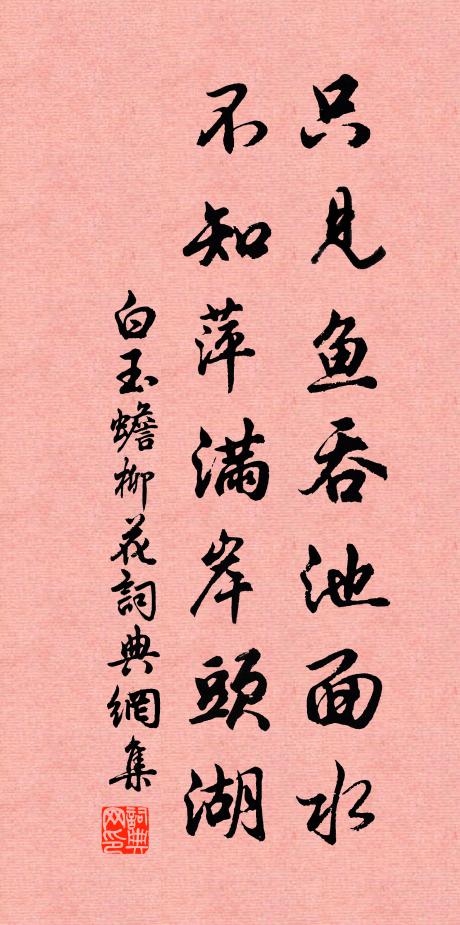 只见鱼吞池面水
不知萍满岸头湖
白玉蟾柳花詞典網集
詞典网印